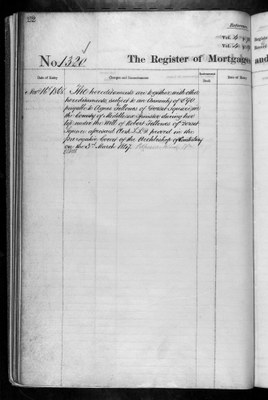 No. 1320
The Register of Mortgages and
Date of Entry
Charges and Incumbrances
Date of Entry
The hereditaments are together with other
hereditaments, subject to an Annuity of £90
payable to Agnes Fellowes of Dorset Square in
the County of Middlesex Spinster during her
life under the Will of Robert Fellowes of Dorset
Square aforesaid Clerk L.L.D. proved in the
Prerogative Court of the Archbishop of Canterbury
on the 3rd March 1847